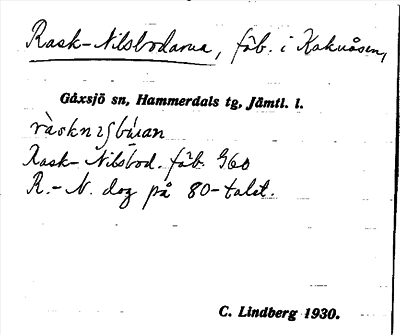 Rask-Nilsbodarna, fäb. i Kakuåsen,
Gåxsjö sn, Hammerdals tg, Jämtl. l.
Rask-Nilsbod. fäb. G60
R.-N. dog på 80-talet.
C. Lindberg 1930.